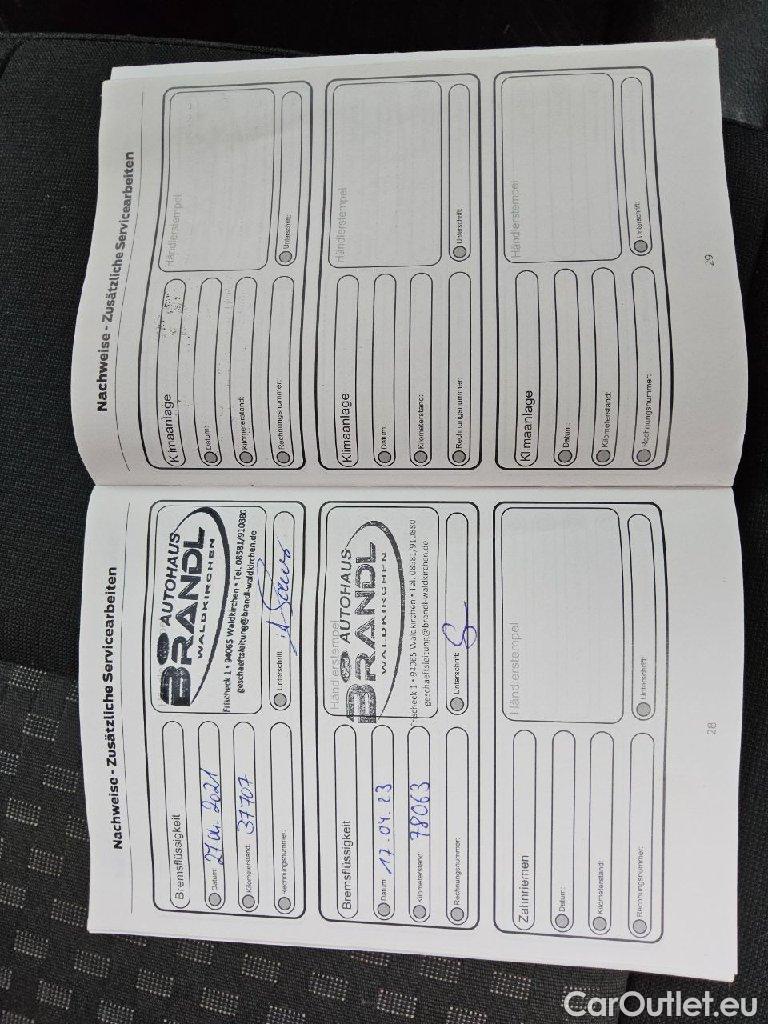 Nachweise - Zusätzliche Servicearbeiten
Bremsflüssigkeit
Datum:
Kilometerstand: 37707
Rechnungsnummer:
AUTOHAUS
BRANDL
WALDKIRCHEN
1 • 94065 Waldkirchen • Tel. 08581/910880
geschaeftsleitung@brandl-waldkirchen.de
Unterschrift:
Bremsflüssigkeit
Datum: 17.04.23
Kilometerstand: 78063
Rechnungsnummer:
Händlerstempel
AUTOHAUS
BRANDL
WALDKIRCHEN
1 • 94065 Waldkirchen • Tel. 08581/910880
geschaeftsleitung@brandl-waldkirchen.de
Unterschrift:
Zahnriemen
Datum:
Kilometerstand:
Rechnungsnummer:
Händlerstempel
Unterschrift:
28
Nachweise - Zusätzliche Servicearbeiten
Klimaanlage
Datum:
Kilometerstand:
Rechnungsnummer:
Händlerstempel
Unterschrift:
Klimaanlage
Datum:
Kilometerstand:
Rechnungsnummer:
Händlerstempel
Unterschrift:
Klimaanlage
Datum:
Kilometerstand:
Rechnungsnummer:
Händlerstempel
Unterschrift:
29
CarOutlet.eu